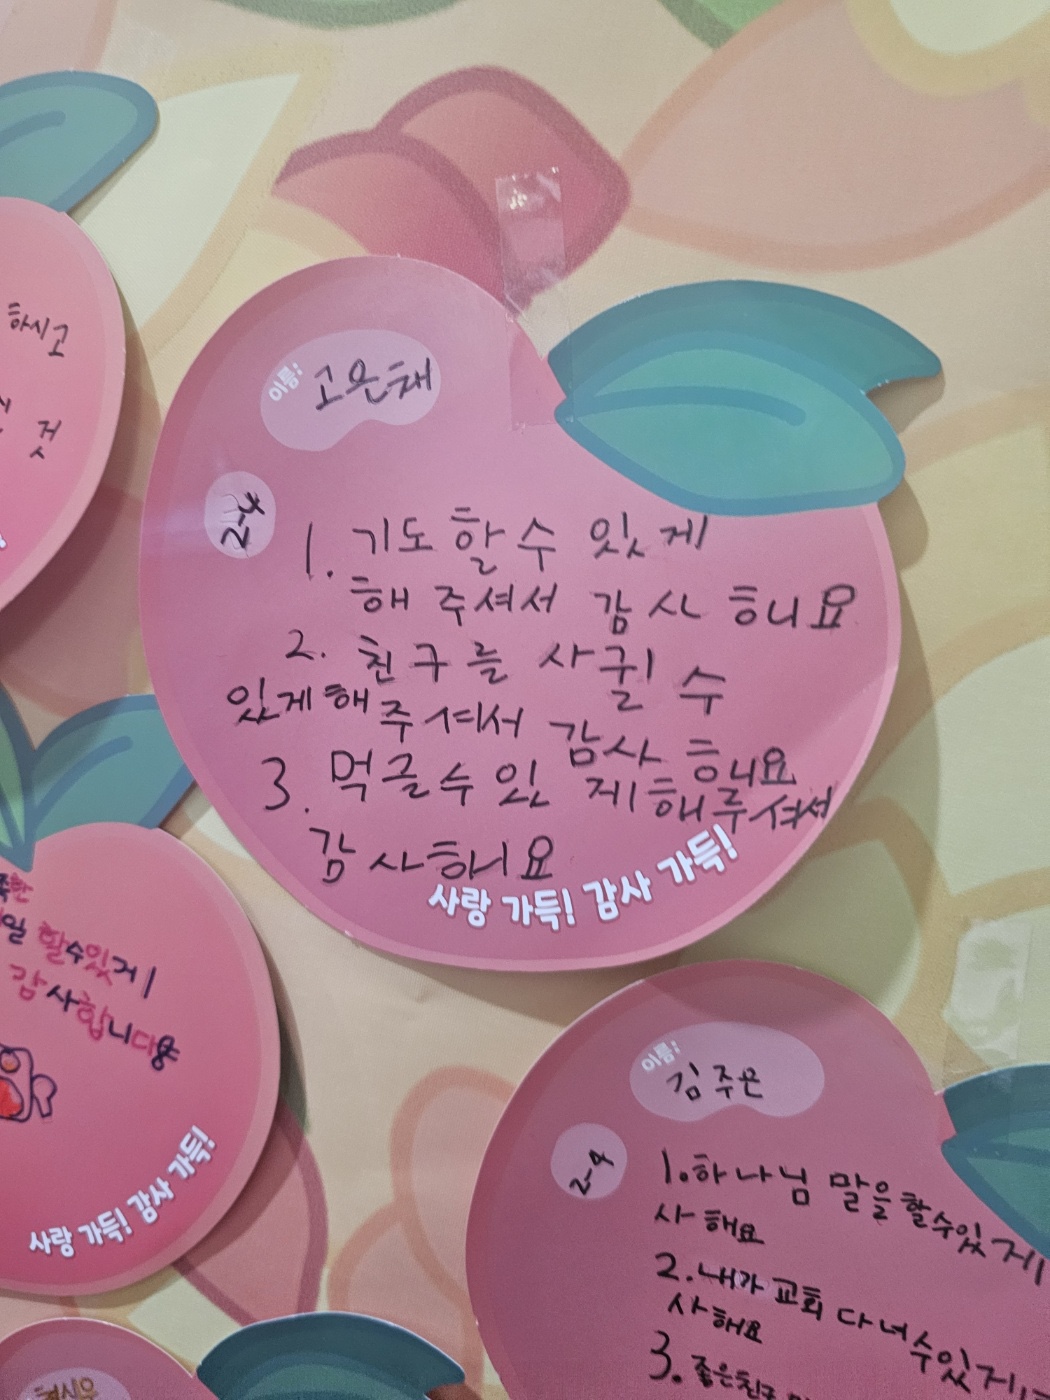 하시고
것
이름: 고은채
2-4
1. 기도 할 수 있게
해 주셔서 감사 하니요
2. 친구를 사귈 수
있게 해 주셔서 감사 해니요
3. 먹글수 있 게해루셔셔
감사하니요
사랑 가득! 감사 가득!
일 할수있게
감사합니다
사랑 가득! 감사 가득!
이름: 김주은
2-4
1. 하나님 말을할수있게
사해요
2. 내가 교회 다녀수있게
사해요
3. 좋은친구